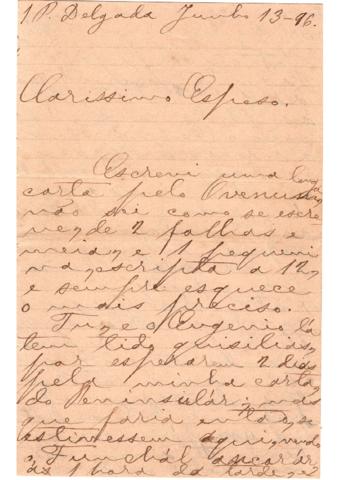 P. Delgada Junho 13-96.
Carissimo Esposo.
Escrevi uma longa
carta pelo
não sei como se escre
ve, de 2 folhas e
meia, e 1 pequeni
na, escripta a 12,
e sempre esquece
o mais preciso.
Tu, e o Eugenio lá
tem tido quisilias,
por esperarem 2 dias
pela minha carta,
do Peninsulár; mas
que faria e
estivessem aqui, vindo
o Funchál ancorár,
ás 1 hora da tarde, e